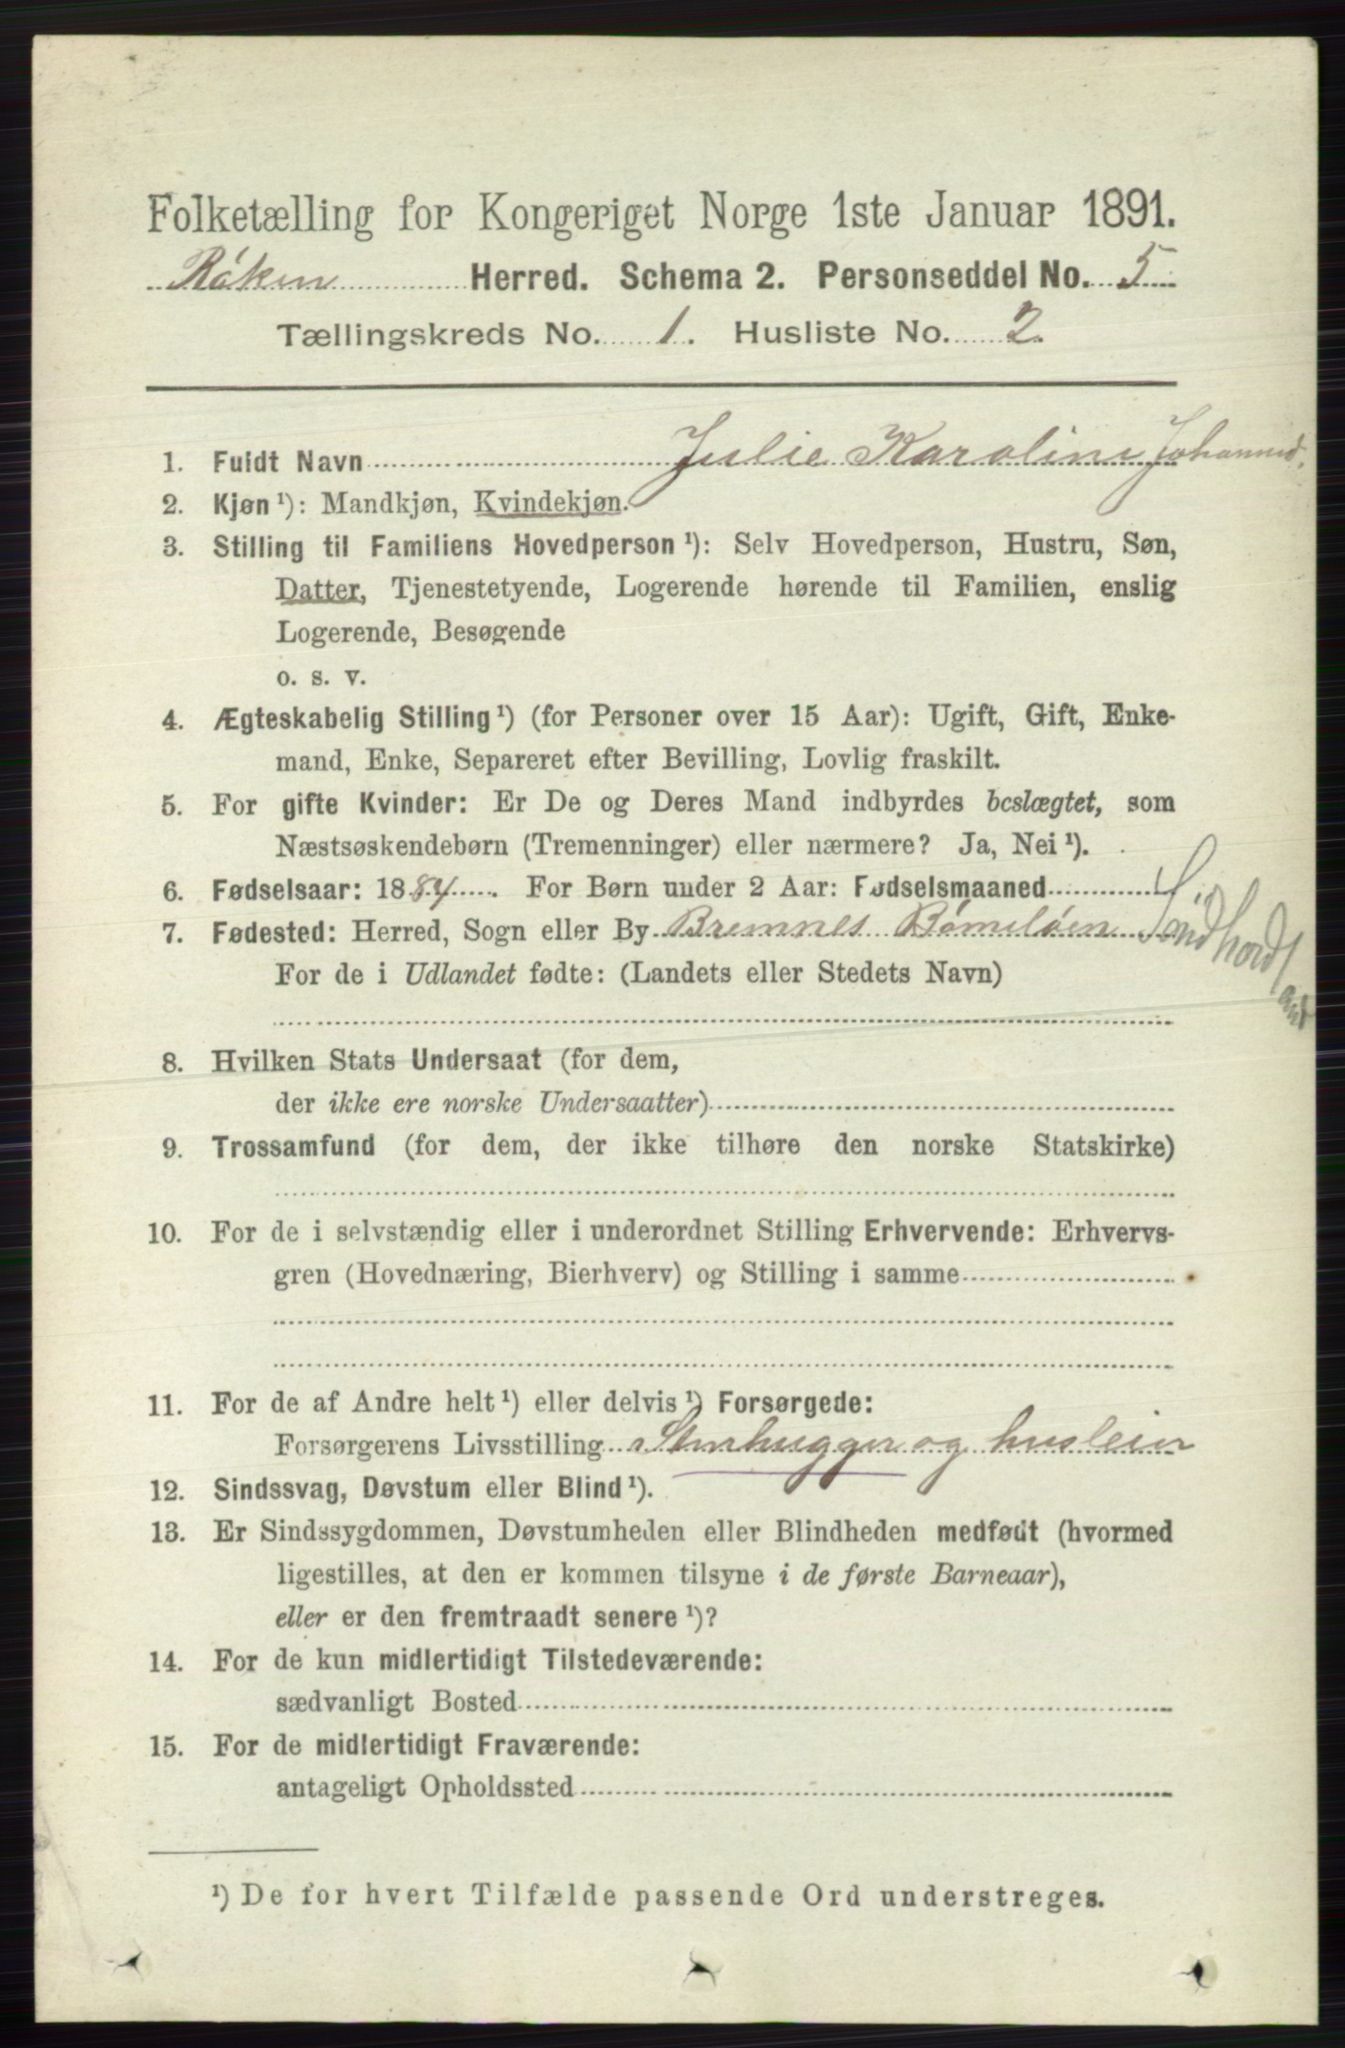 Folketælling for Kongeriget Norge 1ste Januar 1891.
Røken Herred. Schema 2. Personseddel No. 5
Tællingskreds No. 1. Husliste No. 2.
1. Fuldt Navn Julie Karoline Johannesd.
2. Kjøn ¹): Mandkjøn, Kvindekjøn.
3. Stilling til Familiens Hovedperson ¹): Selv Hovedperson, Hustru, Søn,
Datter, Tjenestetyende, Logerende hørende til Familien, enslig
Logerende, Besøgende
o. s. v.
4. Ægteskabelig Stilling ¹) (for Personer over 15 Aar): Ugift, Gift, Enke-
mand, Enke, Separeret efter Bevilling, Lovlig fraskilt.
5. For gifte Kvinder: Er De og Deres Mand indbyrdes beslægtet, som
Næstsøskendebørn (Tremenninger) eller nærmere? Ja, Nei ¹).
6. Fødselsaar: 1884. For Børn under 2 Aar: Fødselsmaaned
7. Fødested: Herred, Sogn eller By Bremnes Bømeløen Söndhordland
For de i Udlandet fødte: (Landets eller Stedets Navn)
8. Hvilken Stats Undersaat (for dem,
der ikke ere norske Undersaatter)
9. Trossamfund (for dem, der ikke tilhøre den norske Statskirke)
10. For de i selvstændig eller i underordnet Stilling Erhvervende: Erhvervs-
gren (Hovednæring, Bierhverv) og Stilling i samme
11. For de af Andre helt ¹) eller delvis ¹) Forsørgede:
Forsørgerens Livsstilling Stenhugger og husleier
12. Sindssvag, Døvstum eller Blind ¹).
13. Er Sindssygdommen, Døvstumheden eller Blindheden medfødt (hvormed
ligestilles, at den er kommen tilsyne i de første Barneaar),
eller er den fremtraadt senere ¹)?
14. For de kun midlertidigt Tilstedeværende:
sædvanligt Bosted
15. For de midlertidigt Fraværende:
antageligt Opholdssted
¹) De for hvert Tilfælde passende Ord understreges.